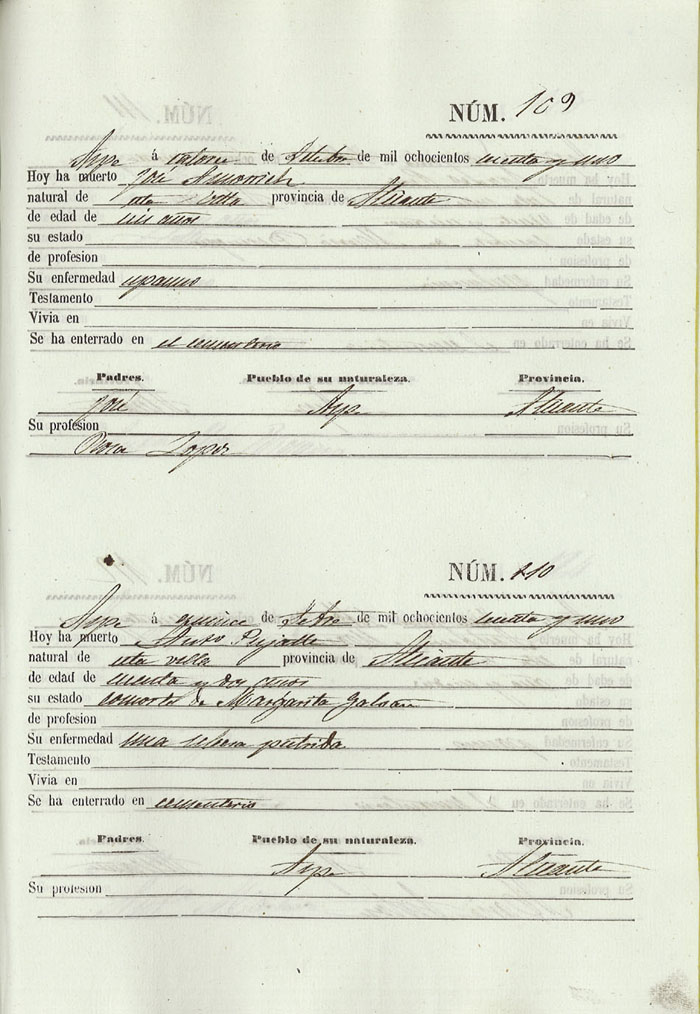 NÚM. 109
Aspe á catorce de Setbre de mil ochocientos sesenta y uno
Hoy ha muerto José
natural de esta Villa provincia de Alicante
de edad de años
su estado
de profesion
Su enfermedad espasmo
Testamento
Vivia en
Se ha enterrado en el cementerio
Padres. Pueblo de su naturaleza. Provincia.
José Aspe Alicante
Su profesion
Rosa Lopez
NÚM. 110
Aspe á quince de Setbre de mil ochocientos sesenta y uno
Hoy ha muerto Pujalte
natural de esta villa provincia de Alicante
de edad de y dos años
su estado consorte de Margarita Galvañ
de profesion
Su enfermedad una putrida
Testamento
Vivia en
Se ha enterrado en cementerio
Padres. Pueblo de su naturaleza. Provincia.
Aspe Alicante
Su profesion